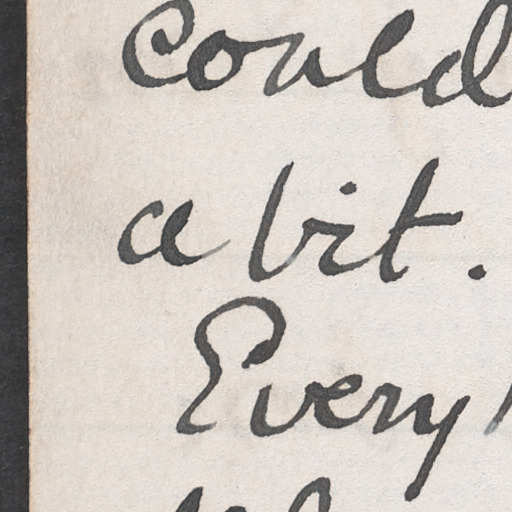 could
a bit.
Every